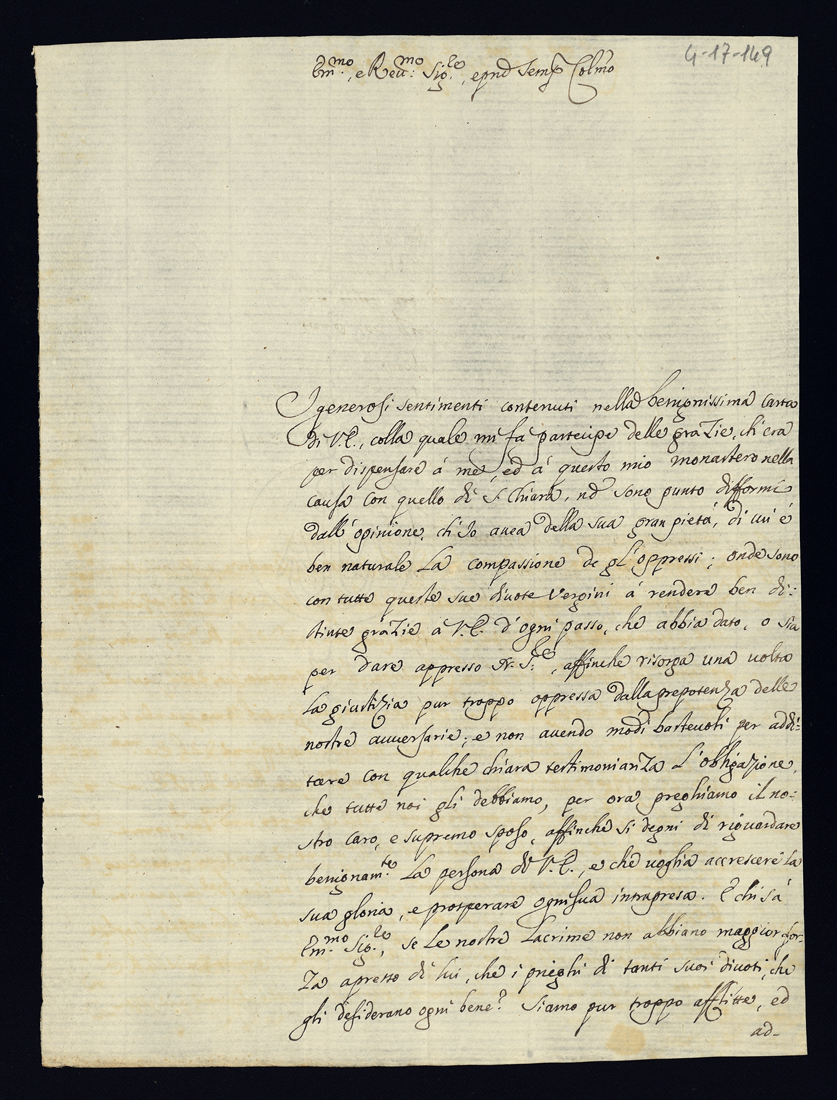 4-17-149
Em.mo, e Reu.mo Sig.re, e pnē Semp. Colmo
I generosi sentimenti contenuti nella benignissima Carta
di V.E., colla quale mi fa partecipe delle graZie, ch'era
per dispensare á me, ed á questo mio monastero nella
causa con quello di S. Chiara, nō sono punto difformi
dall'opinione, ch'Io auea della sua gran pietá, di cui é
ben naturale La compassione de gl'oppressi; onde sono
con tutte queste sue diuote Vergini á rendere ben di:
stinte graZie á V.E. d'ogni passo, che abbia dato, o sia
per dare appresso N. S.re, affinche risorga una uolta
La giustiZia pur troppo oppressa dalla prepotenZa delle
nostre auuersarie; e non auendo modi basteuoli per addi:
tare con qualche chiara testimonianZa L'obligaZione,
che tutte noi gli debbiamo, per ora preghiamo il no:
stro caro, e supremo sposo, affinche si degni di riguardare
benignam.te La persona di V.E., e che uoglia accrescere La
sua gloria, e prosperare ogni sua intrapresa. E chi sá
Em.mo Sig.re, se Le nostre Lacrime non abbiano maggior for:
Za apresso di lui, che i prieghi di tanti suoi diuoti, che
gli desiderano ogni bene? Siamo pur troppo afflitte, ed
ad-